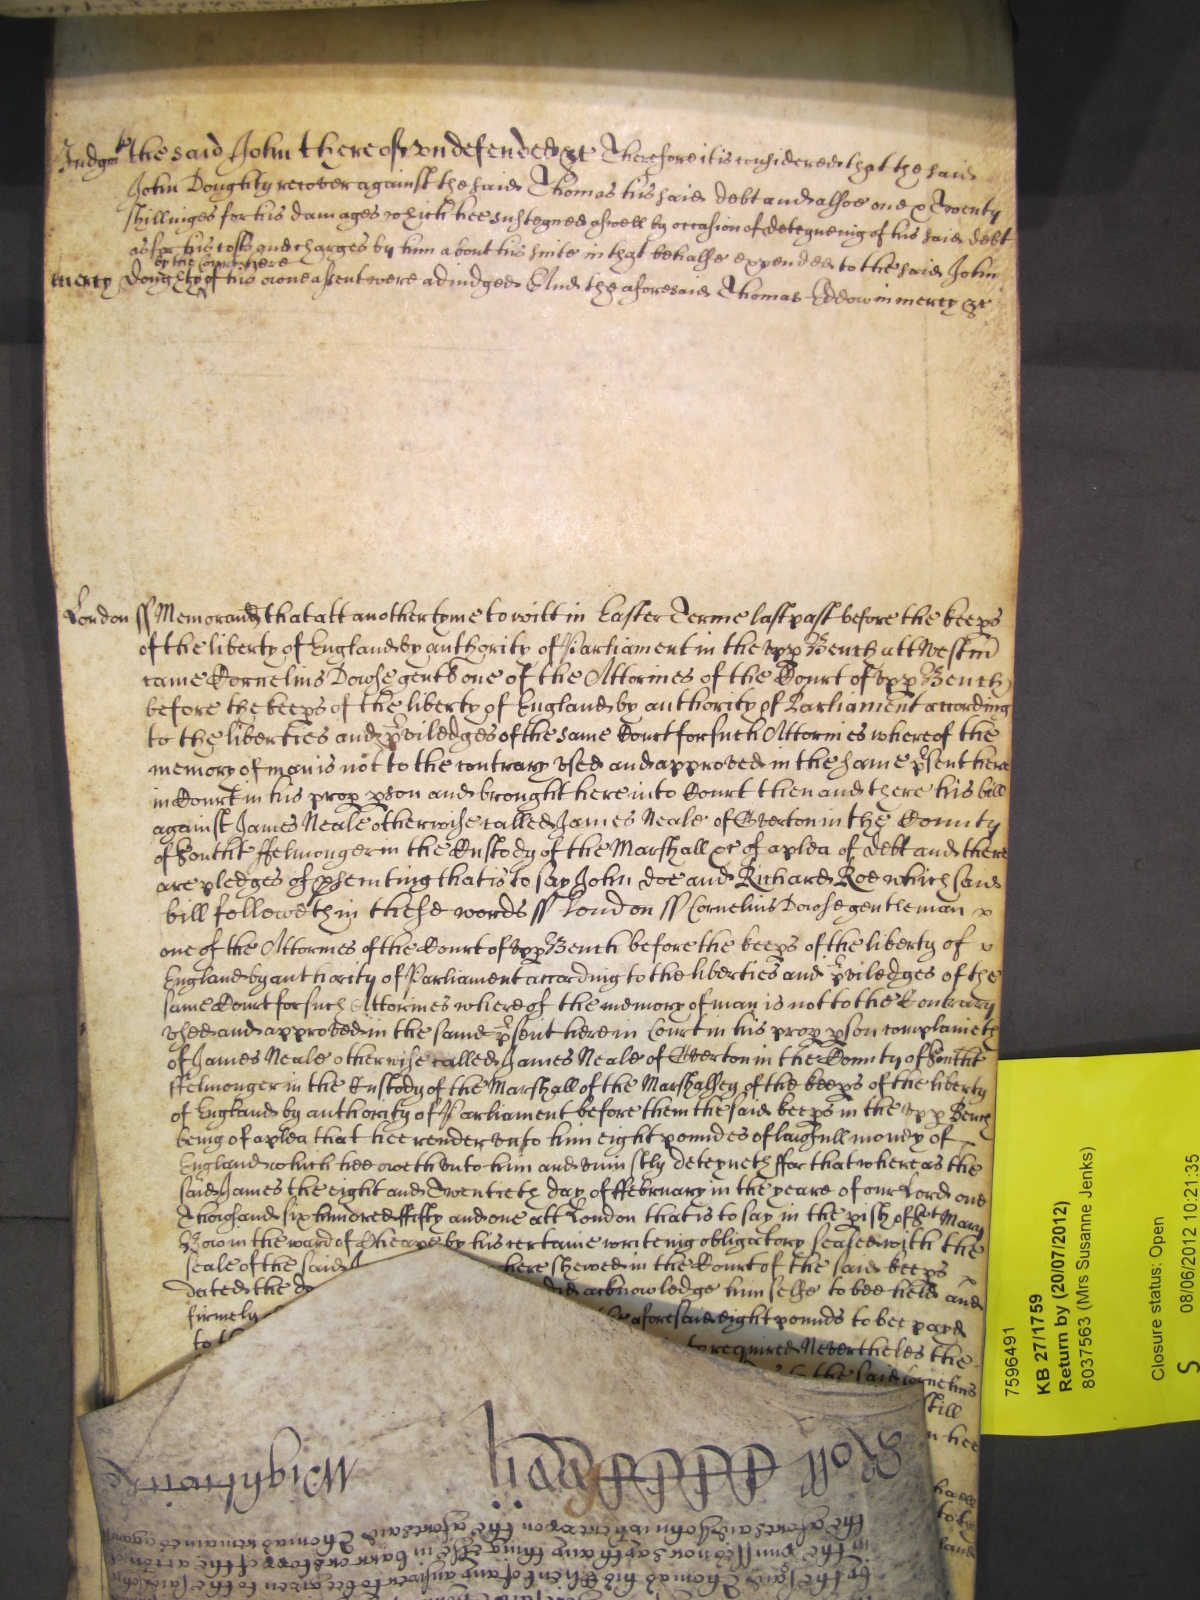 Judgmt the said John thereof undefended &c Therefore it is considered that the said
John Doughty recover against the said Thomas his said debt and alsoe one x Twenty
shillinges for his damages which hee susteyned aswell by occasion of deteyneing of his said debt
as for his costs and charges by him about his suite in that behalfe expended to the said John
by the Court here
mercy Doughty of his owne assent were adiudged And the aforesaid Thomas Eddow in mercy &c
London ss Memorand that att another tyme to witt in Easter Terme last past before the keeps
of the liberty of England by authority of Parliament in the upp Bench att Westm
came Cornelius Dowse gent one of the Attornies of the Court of upp Bench
before the keeps of the liberty of England by authority of Parliament according
to the liberties and priviledges of the same Court for such Attornies whereof the
memory of man is not to the contrary used and approved in the same psent here
in Court in his prop pson and brought here into Court then and there his bill
against James Neale otherwise called James Neale of Overton in the County
of Southt ffelmonger in the Custody of the Marshall &c of a plea of debt and there
are pledges of psecuting that is to say John Doe and Richard Roe which said
bill followeth in these words ss London ss Cornelius Dowse gentleman x
one of the Attornies of the Court of upp Bench before the keeps of the liberty of x
England by authority of Parliament according to the liberties and priviledges of the
same Court for such Attornies whereof the memory of man is not to the Contrary
used and approved in the same psent here in Court in his prop pson complaineth
of James Neale otherwise called James Neale of Overton in the County of Southt
ffelmonger in the Custody of the Marshall of the Marshalsey of the keeps of the liberty
of England by authority of Parliament before them the said keeps in the upp Bench
being of a plea that hee render unto him eight poundes of lawfull money of
England which hee oweth unto him and uniustly deteyneth ffor that whereas the
said James the eight and Twentieth day of ffebruary in the yeare of our Lord one
Thowsand six hundred ffifty and one att London that is to say in the pish of St Mary
Bow in the ward of Cheape by his certaine writeing obligatory sealed with the
seale of the said here shewed in the Court of the said keeps
dated the did acknowledge himselfe to bee held and
firmely aforesaid eight pounds to bee payd
to required Nevertheles the
the said Cornelius
still
n hee
have
to the
said
Roll Wightwicke
the aforesaid John whereupon the aforesaid Thomas
7596491
KB 27/1759
Return by (20/07/2012)
8037563 (Mrs Susanne Jenks)
Closure status: Open
08/06/2012 10:21:35
S